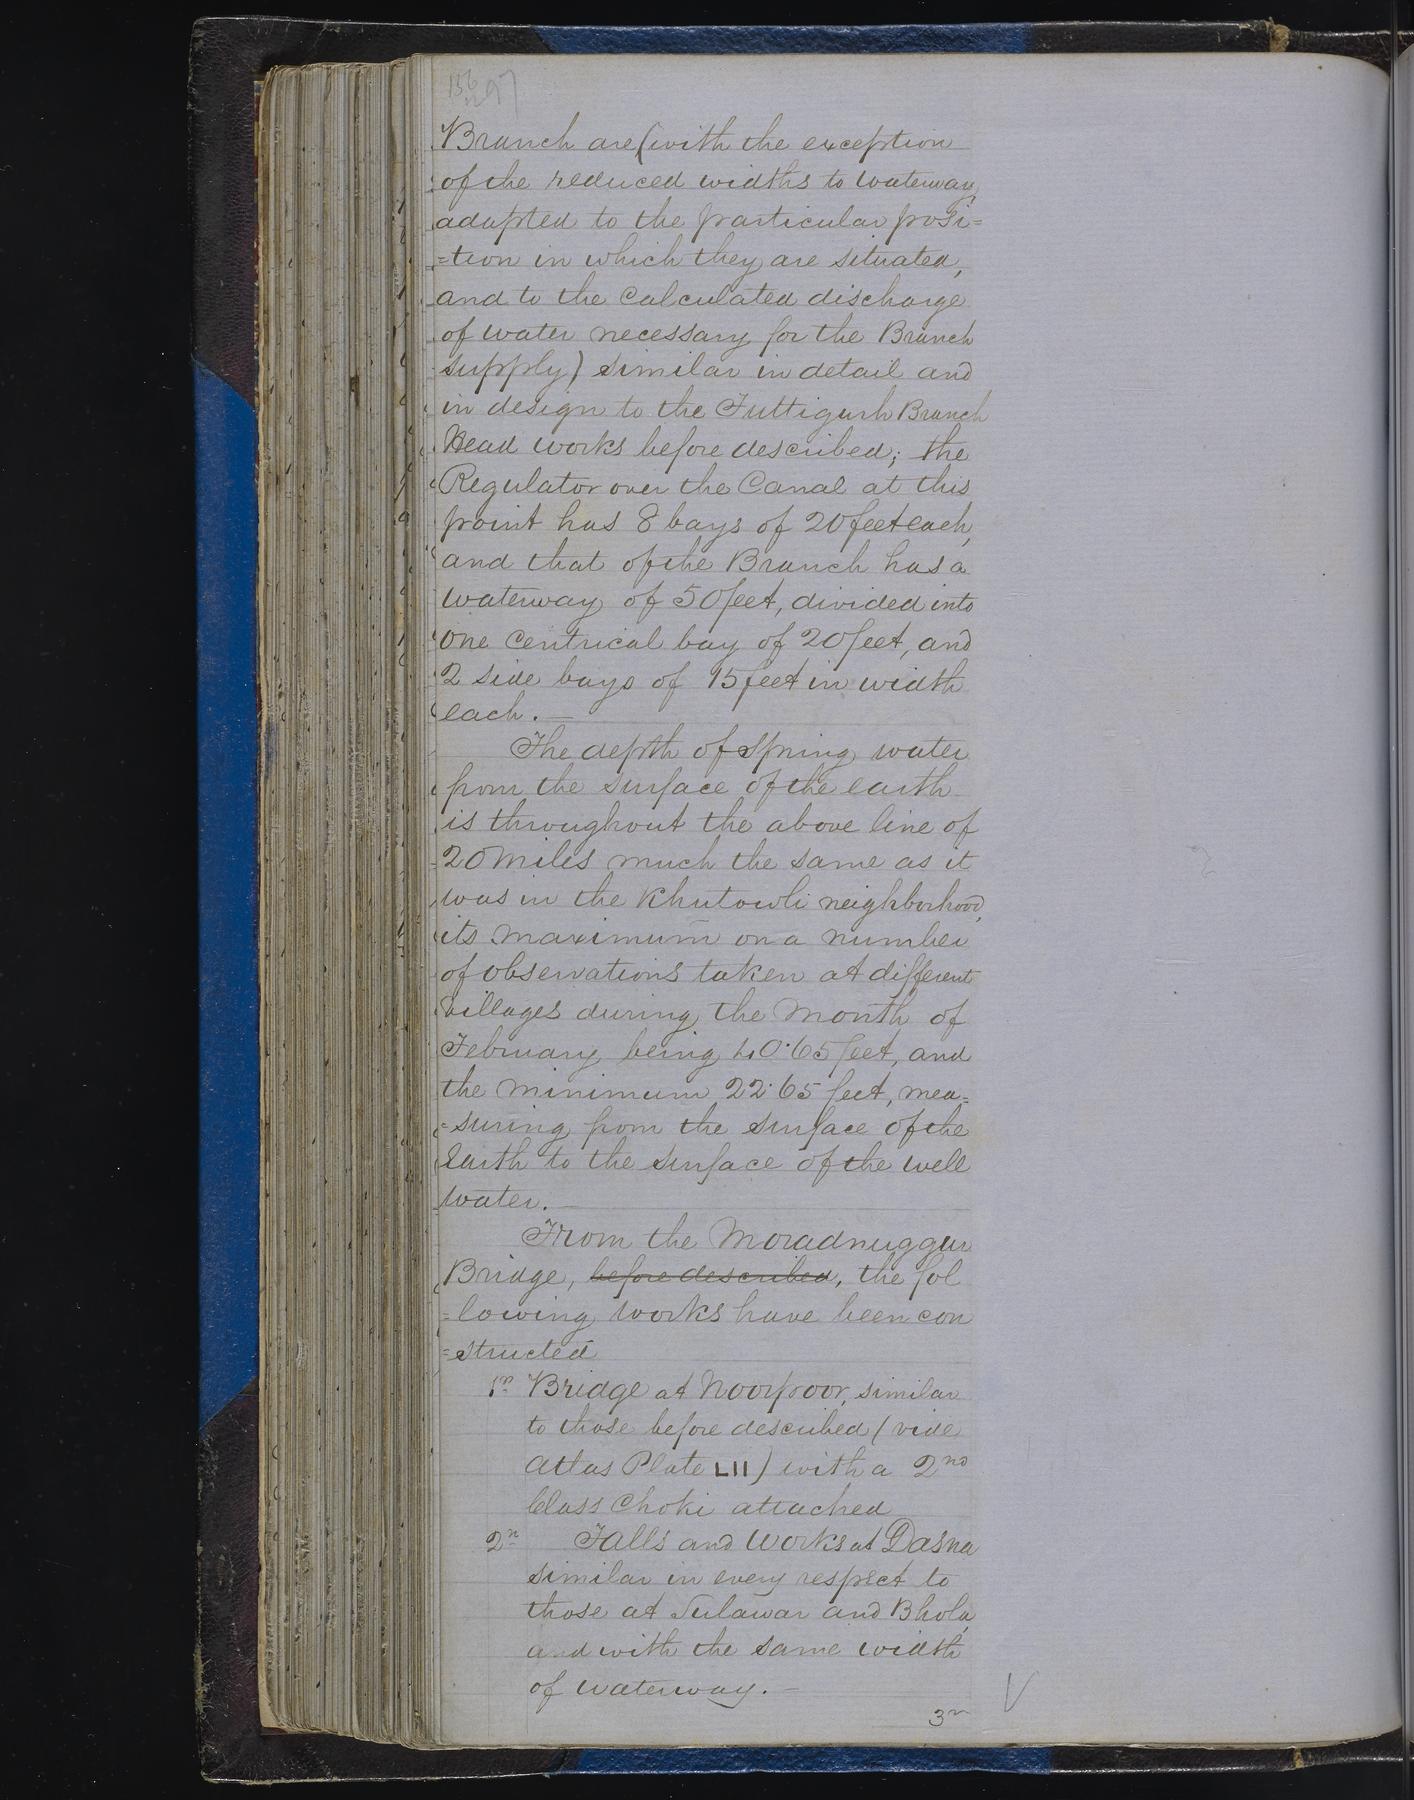 297
Branch are (with the exception
of the reduced widths to waterway,
adapted to the particular posi=
=tion in which they are situated,
and to the Calculated discharge
of water necessary for the Branch
supply) similar in detail and
in design to the Futtigurh Branch
Head works before described; the
Regulator over the Canal at this
point has 8 bays of 20 feet each,
and that of the Branch has a
waterway of 50 feet, divided into
one centrical bay of 20 feet, and
2 side bays of 15 feet in width
each. —
The depth of Spring water
from the surface of the earth
is throughout the above line of
20 miles much the same as it
was in the Khutowli neighborhood,
its maximum on a number
of observations taken at different
villages during the Month of
February being 40.65 feet, and
the minimum 22.65 feet, mea=
=suring from the surface of the
Earth to the surface of the well
water. —
From the Moradnuggur
Bridge, before described, the fol
=lowing works have been con
=structed
1st Bridge at Noorpoor, similar
to those before described (vide
Atlas Plate LII) with a 2nd
Class Choki attached
2n Falls and Works at Dasna
similar in every respect to
those at Sulawar and Bhola,
and with the same width
of waterway. —
3rd